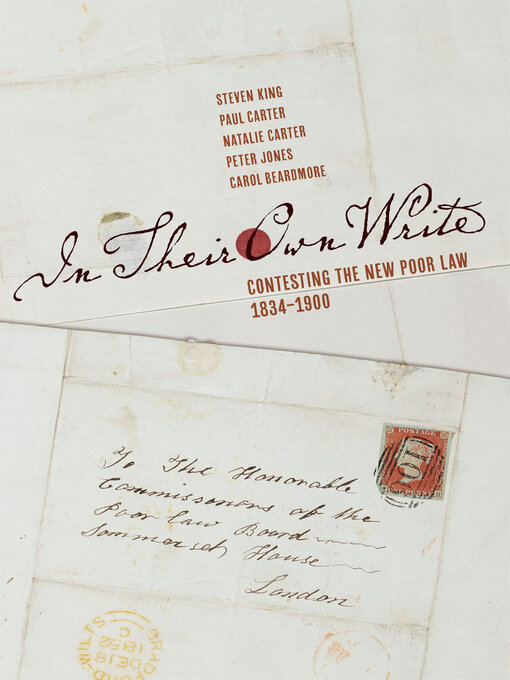 STEVEN KING
PAUL CARTER
NATALIE CARTER
PETER JONES
CAROL BEARDMORE
In Their Own Write
CONTESTING THE NEW POOR LAW
1834–1900
POSTAGE
ONE PENNY
To The Honorable
Commissoners of the
Poor law Board
Sommerset House
London
BRADFORD-WILTS
C
DE 18
1852